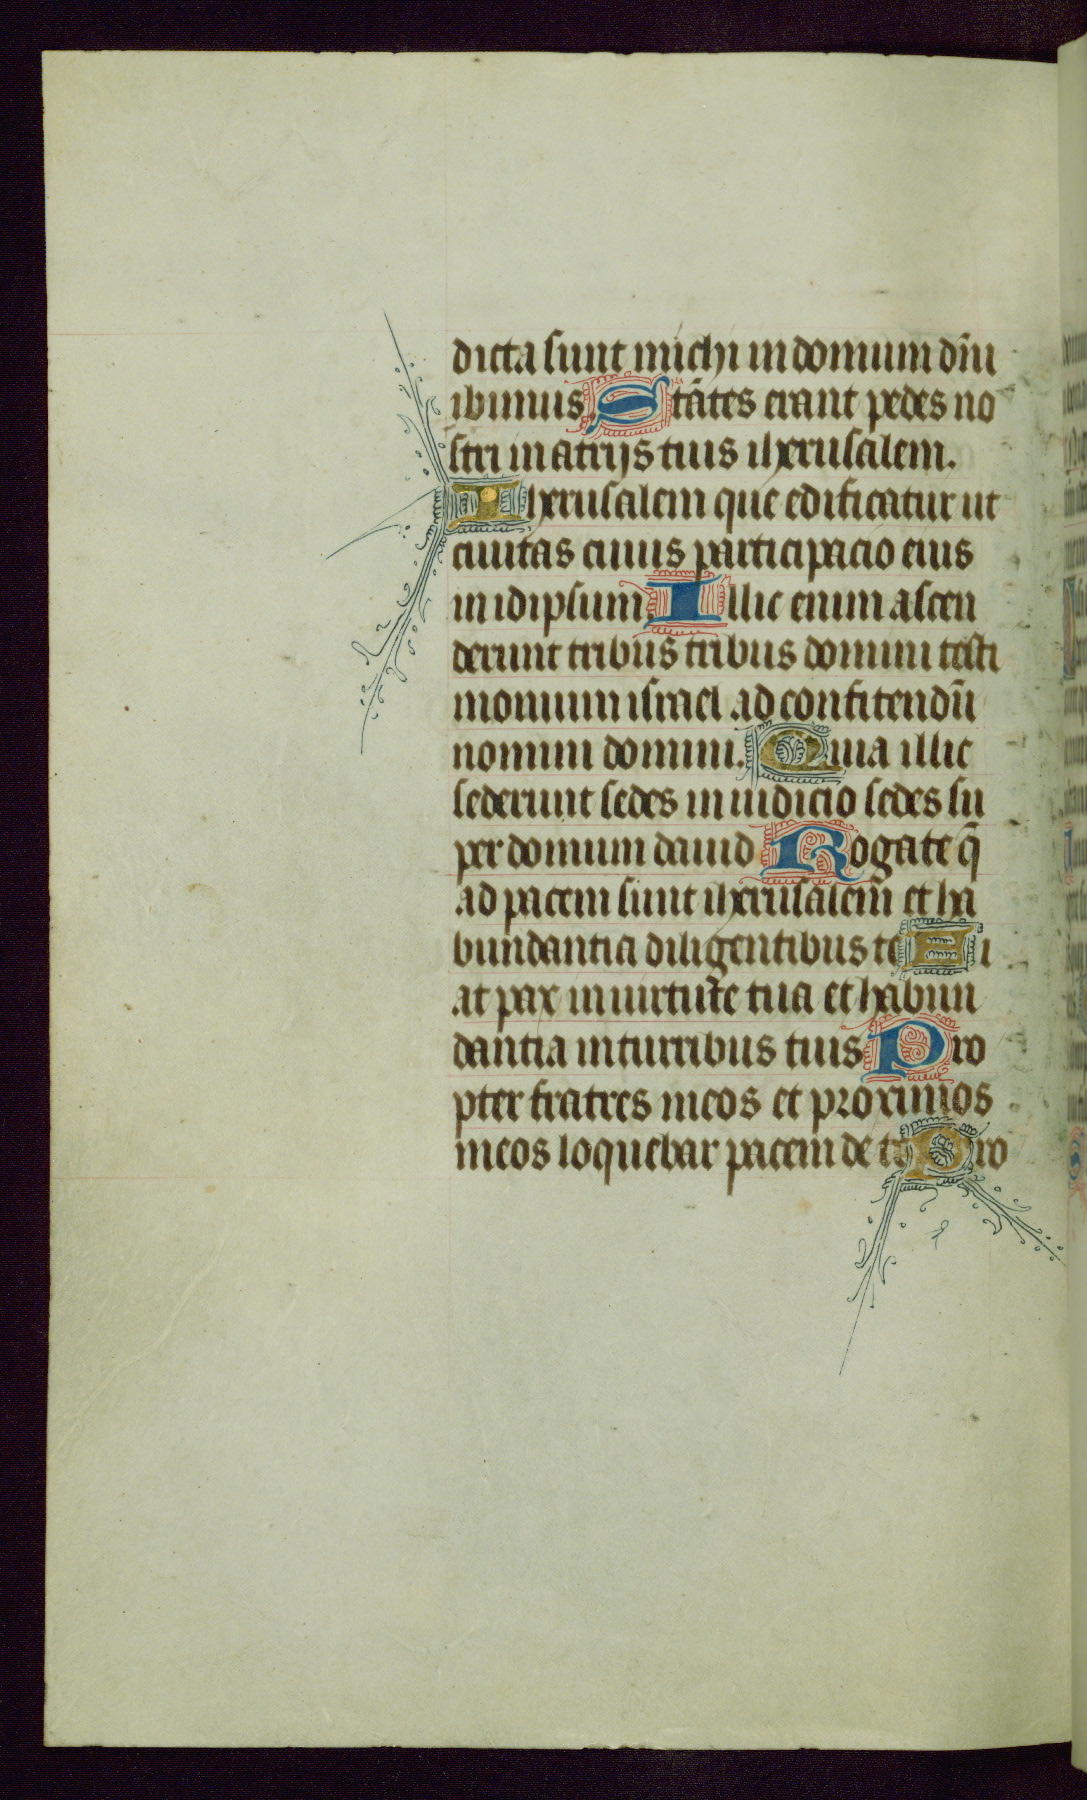 dicta sunt michi in domum dn̄i
ibimus Stātes erant pedes no
stri in atrijs tuis iherusalem.
Iherusalem que edificatur ut
ciuitas cuius participacio eius
in idipsum. Illic enim ascen
derunt tribus tribus domini testi
monium israel ad confitendū
nomini domini. Quia illic
sederunt sedes in iudicio sedes su
per domum dauid Rogate q̄
ad pacem sunt iherusalem et ha
bundantia diligentibus te Fi
at pax in uirtute tua et habun
dantia in turribus tuis Pro
pter fratres meos et proximos
meos loquebar pacem de te Pro